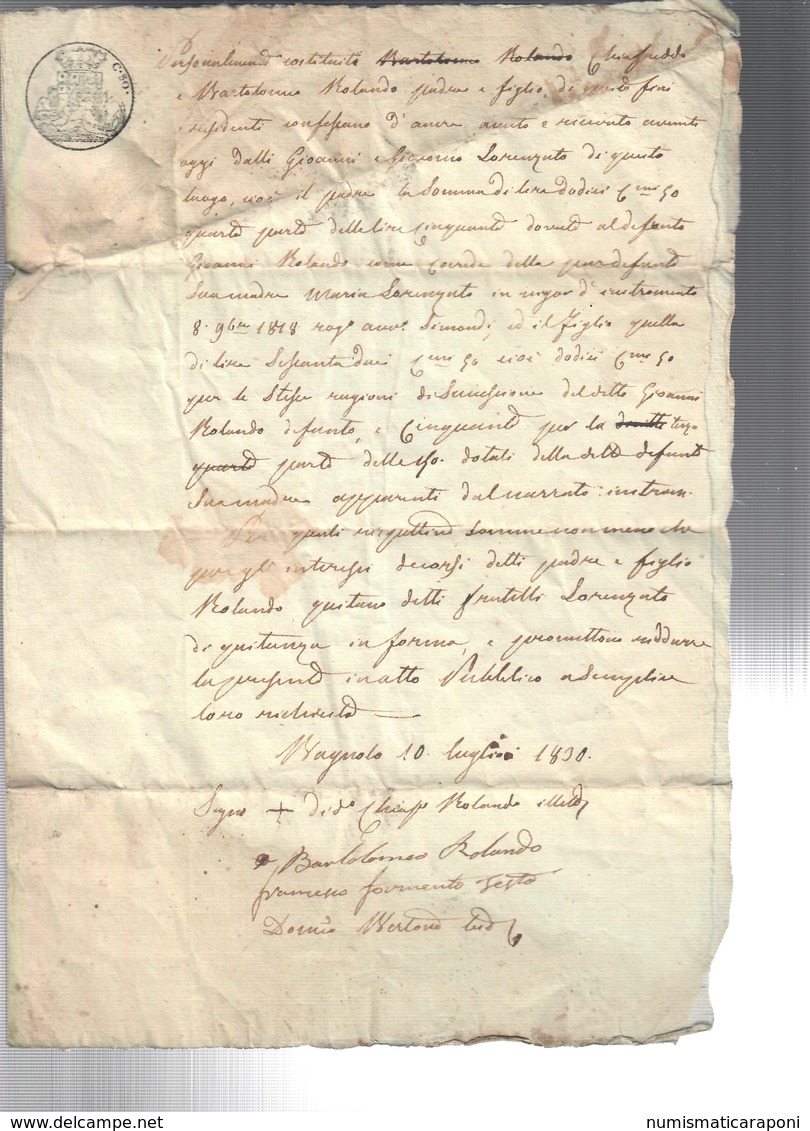 C. 50.
Personalmente costituiti Bartolomeo Rolando Chiaffredo
e Bartolomeo Rolando padre e figlio di queste fini
e residenti confessano d'avere avuto e ricevuto avanti
oggi dalli Gioanni e Giacomo Lorenzato di questo
luogo, cioè il padre la somma di lire dodici C.mi 50
quarta parte delle lire cinquanta dovute al defunto
Gioanni Rolando come erede della pur defunta
sua madre Maria Lorenzato in vigor d'instromento
8. 9bre 1818 rog.o Simondi, ed il figlio quella
di lire sessanta due C.mi 50 cioè dodici C.mi 50
per le stesse ragioni di successione del detto Gioanni
Rolando defunto, e cinquanta per la terza
quarta parte delle 150. dotali della detta defunta
sua madre apparenti dal narrato instrom.
quali rispettive somme non meno che
per gli interessi decorsi detti padre e figlio
Rolando quitano detti fratelli Lorenzato
di quitanza in forma, e promettono riddurre
la presente in atto Pubblico a semplice
loro richiesta
Bagnolo 10. luglio 1830.
Segno + di d.o Chiaff.o Rolando illett.o
Bartolomeo Rolando
Francesco Formento Testo
numismaticaraponi